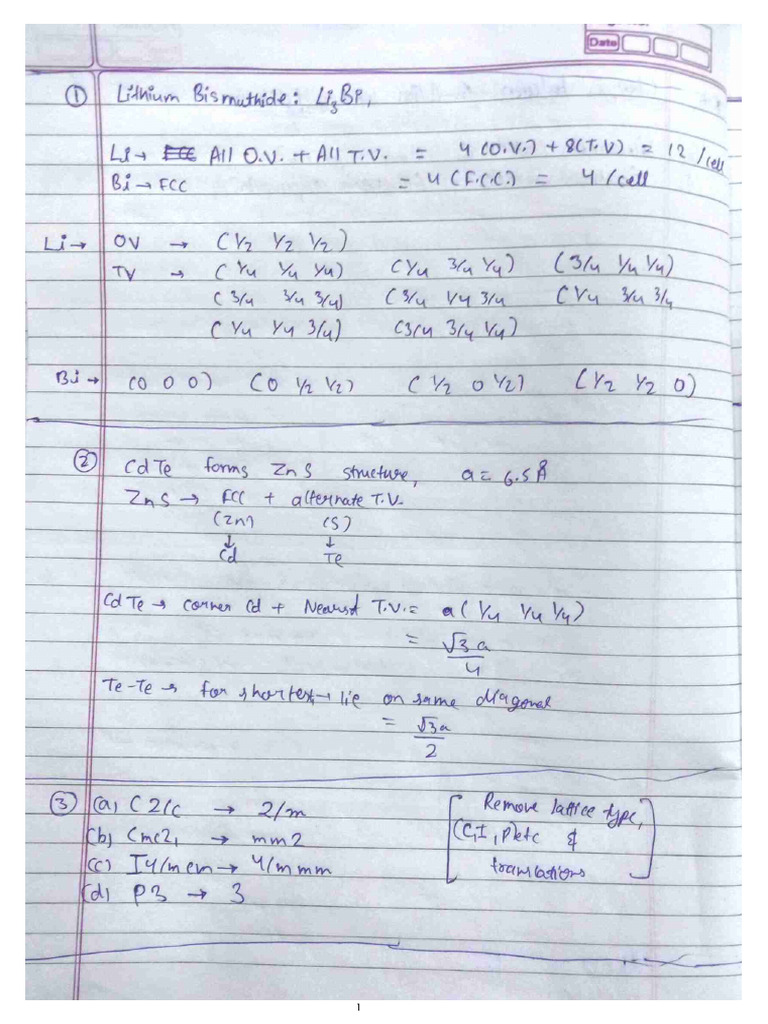 Date
① Lithium Bismuthide: Li3Bi,
Li → All O.V. + All T.V. = 4 (O.V.) + 8(T.V) = 12 /cell
Bi → FCC = 4 (F.C.C.) = 4 /cell
Li → OV → (1/2 1/2 1/2)
TV → (1/4 1/4 1/4) (1/4 3/4 1/4) (3/4 1/4 1/4)
(3/4 3/4 3/4) (3/4 1/4 3/4 (1/4 3/4 3/4
(1/4 1/4 3/4) (3/4 3/4 1/4)
Bi → (0 0 0) (0 1/2 1/2) (1/2 0 1/2) (1/2 1/2 0)
② CdTe forms ZnS structure, a = 6.5Å
ZnS → FCC + alternate T.V.
(Zn) (S)
↓ ↓
Cd Te
CdTe → corner Cd + Nearest T.V. = a(1/4 1/4 1/4)
= √3a/4
Te-Te → for shortest → lie on same diagonal
= √3a/2
③ (a) C2/c → 2/m [Remove lattice type,
(b) Cmc21 → mm2 (C,I,P)etc &
(c) I4/mcm → 4/mmm translations]
(d) P3 → 3
1